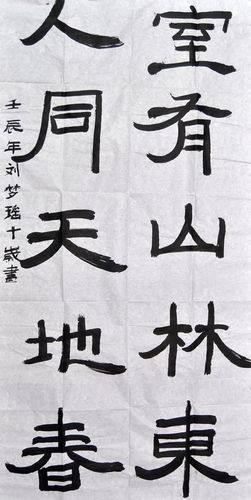 室有山林東
人同天地春
壬辰年刘梦瑶十歲書